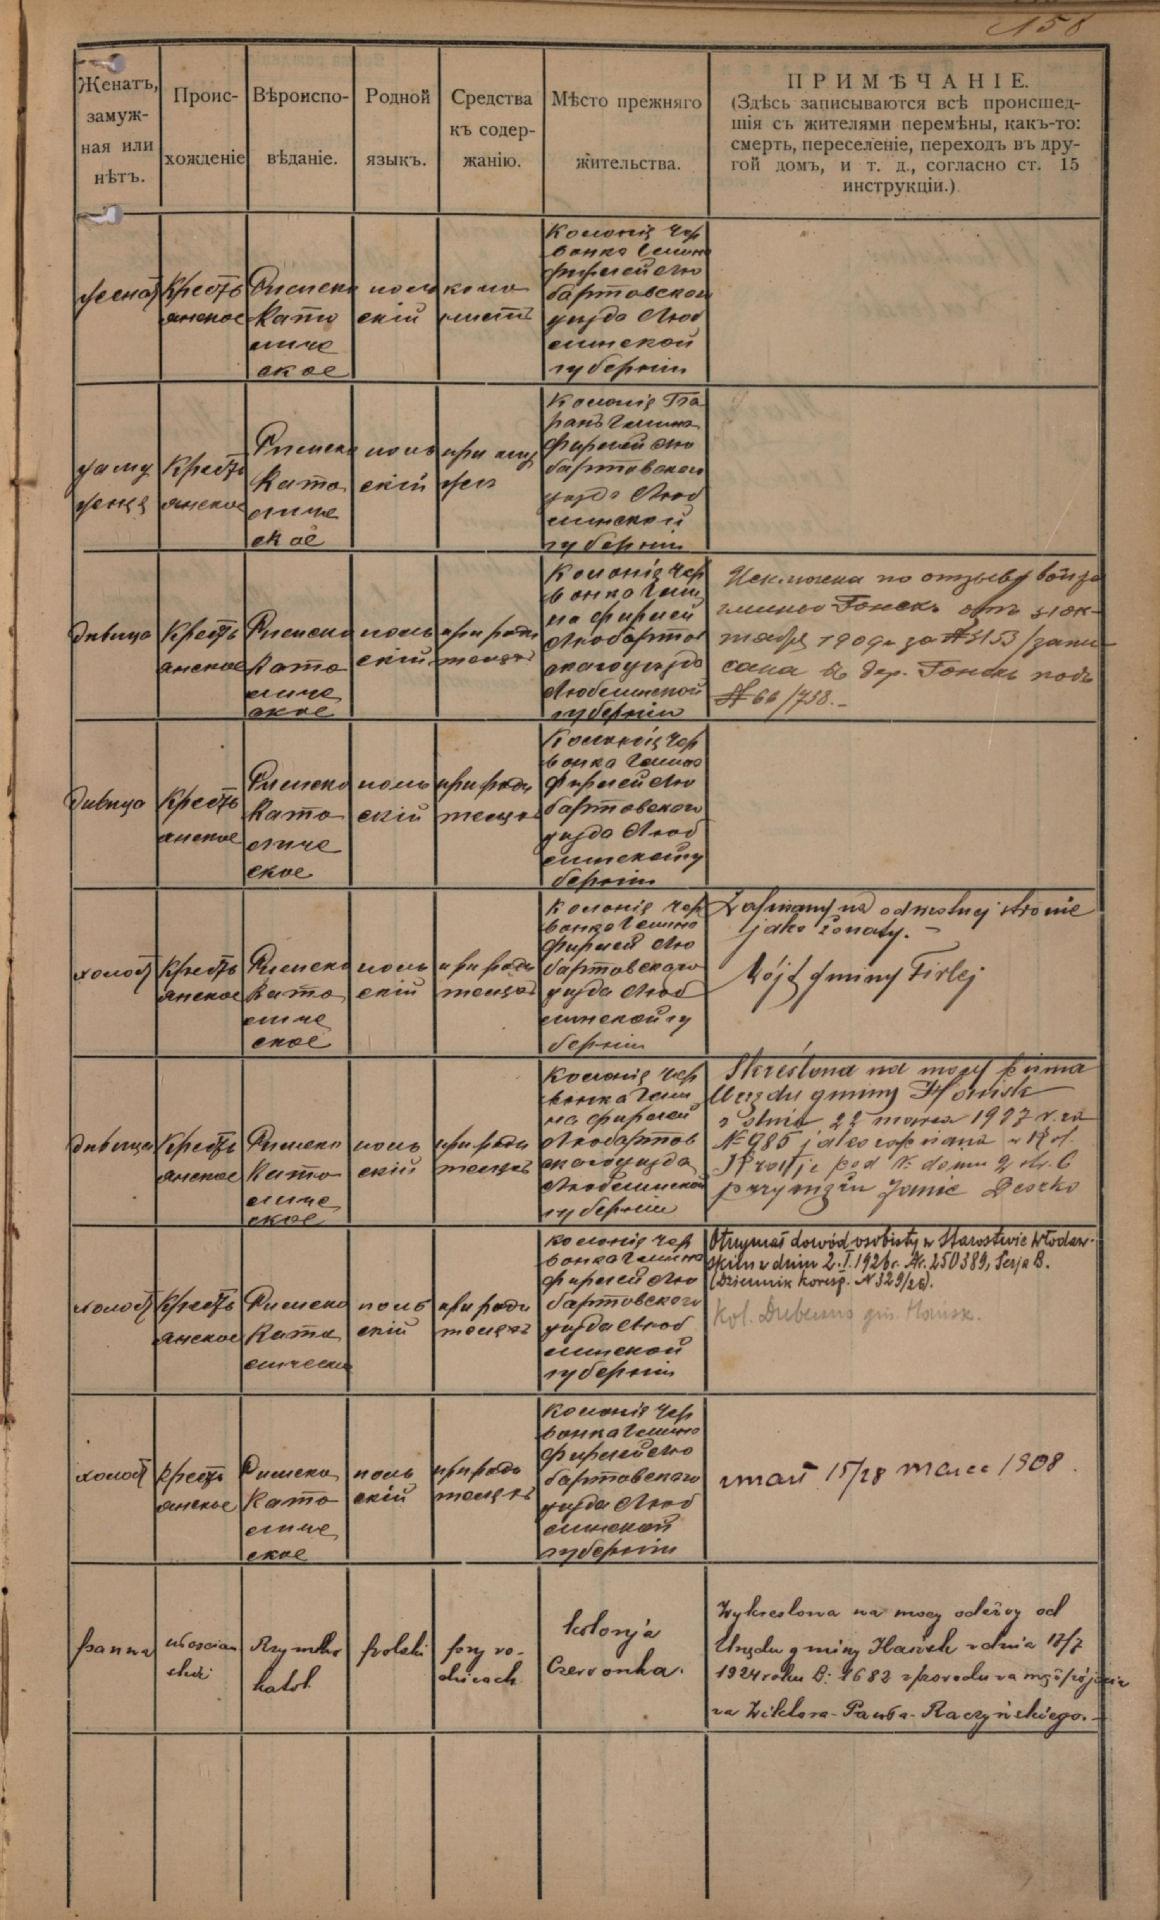 158
Женатъ,
замуж-
ная или
нѣтъ.
Проис-
хожденіе
Вѣроиспо-
вѣданіе.
Родной
языкъ.
Средства
къ содер-
жанію.
Мѣсто прежняго
жительства.
ПРИМѢЧАНІЕ.
(Здѣсь записываются всѣ происшед-
шія съ жителями перемѣны, какъ-то:
смерть, переселеніе, переходъ въ дру-
гой домъ, и т. д., согласно ст. 15
инструкціи.)
женатъ
Кресть
янское
Римско
Като
личе
ское
поль
скій
коло
нистъ
Колонія Чер
вонка Гмины
Фирлей Лю
бартовскаго
уѣзда Люб
линской
губерніи
заму
жняя
Кресть
янское
Римско
Като
личе
ское
поль
скій
при му
жѣ
Колонія Ба
ранъ Гмины
Фирлей Лю
бартовскаго
уѣзда Люб
линской
губерніи
дѣвица
Кресть
янское
Римско
Като
личе
ское
поль
скій
при роди
теляхъ
Колонія Чер
вонка Гми
на Фирлей
Любартов
скаго уѣзда
Люблинской
губерніи
Исключена по отзыву войта
гмины Ганскъ отъ 31 ок-
тября 1909 г. за № 3153 /запи-
сана въ дер. Ганскъ подъ
№ 66/758.-
дѣвица
Кресть
янское
Римско
Като
личе
ское
поль
скій
при роди
теляхъ
Колонія Чер
вонка Гмины
Фирлей Лю
бартовскаго
уѣзда Люб
линской гу
берніи
холостъ
Кресть
янское
Римско
Като
личе
ское
поль
скій
при роди
теляхъ
Колонія Чер
вонка Гмины
Фирлей Лю
бартовскаго
уѣзда Люб
линской гу
берніи
Zapisany na odwrotnej stronie
jako żonaty. -
Wójt gminy Firlej
дѣвица
Кресть
янское
Римско
Като
личе
ское
поль
скій
при роди
теляхъ
Колонія Чер
вонка Гми
на Фирлей
Любартов
скаго уѣзда
Люблинской
губерніи
Skreślona na mocy pisma
Urzędu gminy Hańsk
z dnia 22 marca 1927 r. za
№ 985 jako zapisana w
pod № domu 2 str. 6
przy mężu Janie Deszko
холостъ
Кресть
янское
Римско
Като
лическое
поль
скій
при роди
теляхъ
Колонія Чер
вонка Гмины
Фирлей Лю
бартовскаго
уѣзда Люб
линской
губерніи
Otrzymał dowód osobisty w Starostwie Włodaw-
skim w dniu 2.I.1926 r. Nr. 250389, Serja B.
(Dziennik koresp. N 329/26).
kol. Dubeczno gm. Hańsk.
холостъ
Кресть
янское
Римско
Като
личе
ское
поль
скій
при роди
теляхъ
Колонія Чер
вонка Гмины
Фирлей Лю
бартовскаго
уѣзда Люб
линской
губерніи
zmarł 15/28 marca 1908.
panna
włościań
ski
Rzymsko
katol.
polski
przy ro-
dzicach
kolonja
Czerwonka.
Wykreślona na mocy odezwy od
Urzędu gminy Hańsk z dnia 17/7
1924 roku B: 1682 z powodu za mąż pójścia
za Wiktora-Pawła-Raczyńskiego.-